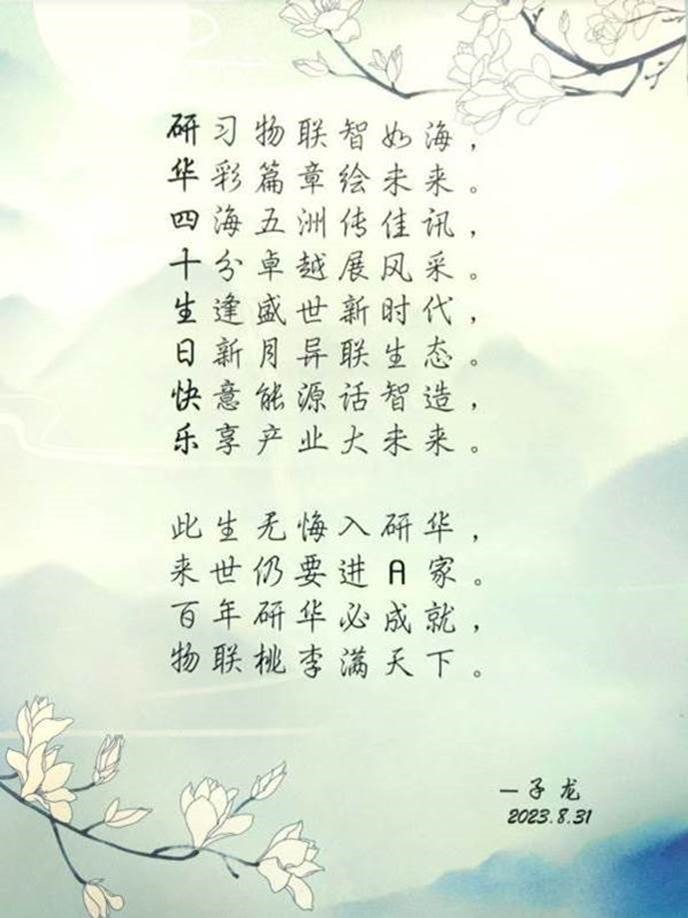 研习物联智如海，
华彩篇章绘未来。
四海五洲传佳讯，
十分卓越展风采。
生逢盛世新时代，
日新月异联生态。
快意能源话智造，
乐享产业大未来。
此生无悔入研华，
来世仍要进A家。
百年研华必成就，
物联桃李满天下。
一子龙
2023.8.31